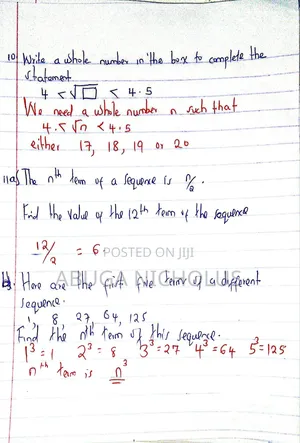 10. Write a whole number in the box to complete the
statement
4 < √□ < 4.5
We need a whole number n such that
4 < √n < 4.5
either 17, 18, 19 or 20
11a) The nth term of a sequence is n/2.
Find the value of the 12th term of the sequence
12/2 = 6
POSTED ON JIJI
ABUGA NICHOLUS
b. Here are the first five terms of a different
sequence.
1, 8, 27, 64, 125
Find the nth term of this sequence.
1³=1 2³=8 3³=27 4³=64 5³=125
nth term is n³